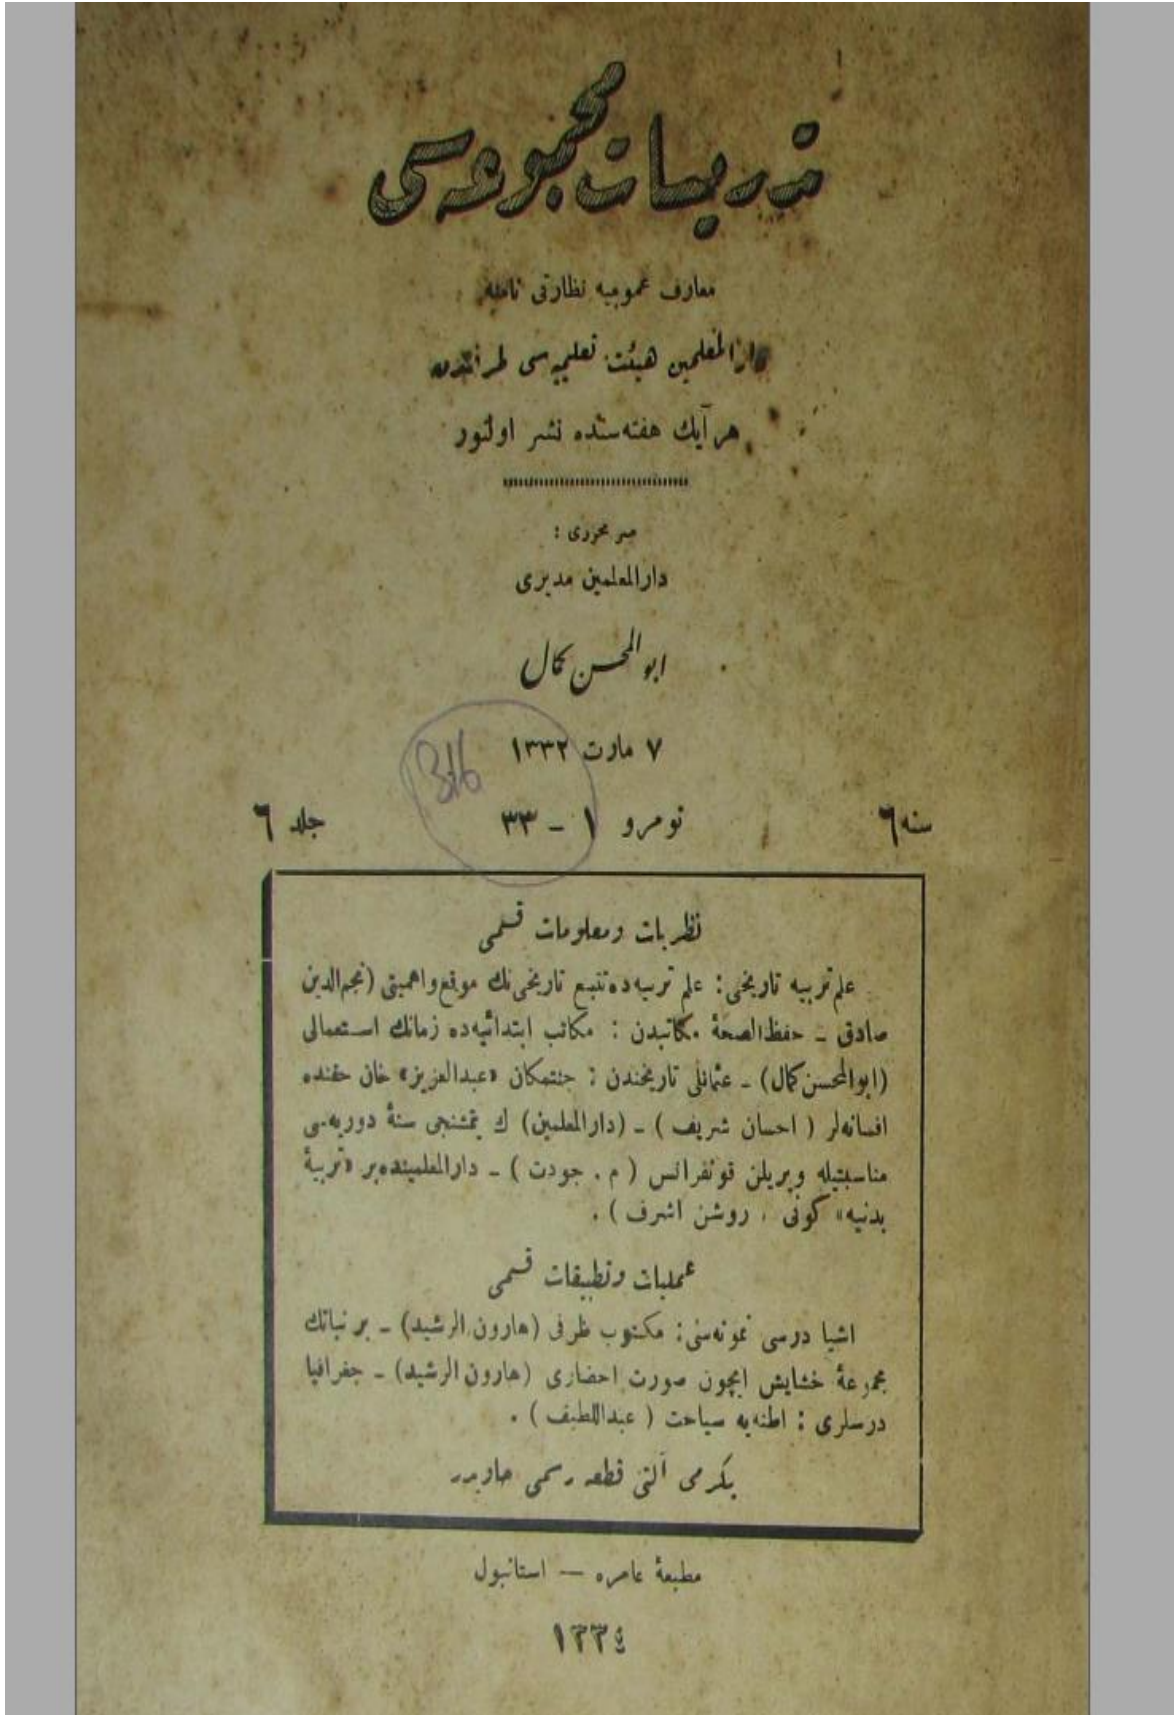 تدريسات مجموعه‌سى
معارف عموميه نظارتى نامنه
دارالمعلمين هيئت تعليميه‌سى طرفندن
هر آيك هفته‌سنده نشر اولنور
سر محررى :
دارالمعلمين مديرى
ابوالمحسن كمال
٧ مارت ١٣٣٢
316
سنه ٦ نومرو ١ - ٣٣ جلد ٦
نظريات ومعلومات قسمى
علم تربيه تاريخى : علم تربيه‌ده تتبع تاريخى‌نك موقع واهميتى (نجم‌الدين
صادق - حفظ‌الصحهٔ مكاتبدن : مكاتب ابتدائيه‌ده زمانك استعمالى
(ابوالمحسن كمال) - عثمانلى تاريخندن : جنتمكان «عبدالعزيز» خان حقنده
افسانه‌لر ( احسان شريف ) - (دارالمعلمين) ك يتمشنجى سنهٔ دوريه‌سى
مناسبتيله ويريلن قونفرانس ( م . جودت ) - دارالمعلمينده‌بر «تربيهٔ
بدنيه» كونى . روشن اشرف ) .
عمليات وتطبيقات قسمى
اشيا درسى نمونه‌سنى : مكتوب ظرفى (هارون الرشيد) - بر نباتك
مجموعهٔ خشايش ايچون صورت احضارى (هارون الرشيد) - جغرافيا
درسلرى : اطنه‌يه سياحت ( عبداللطيف ) .
يكرمى آلتى قطعه رسمى حاويدر
مطبعهٔ عامره — استانبول
١٣٣٤